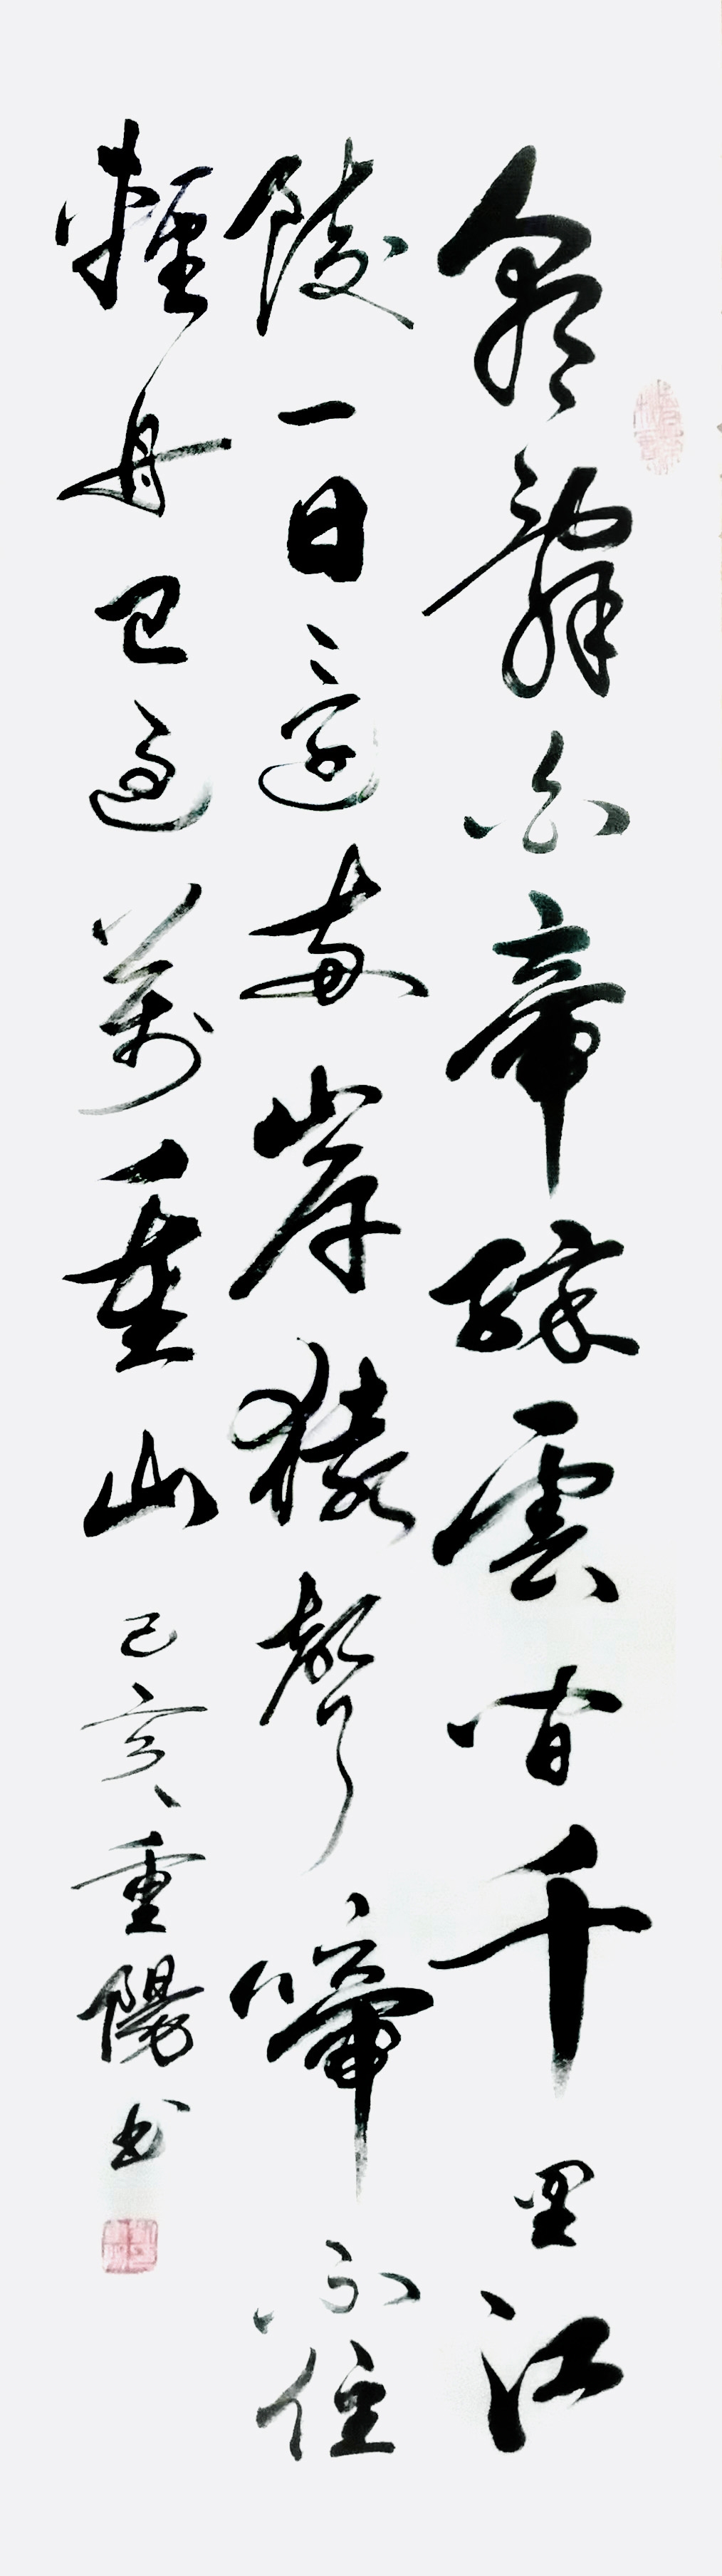 朝辭白帝綵雲間千里江
陵一日還兩岸猿聲啼不住
輕舟已過萬重山己亥重陽书